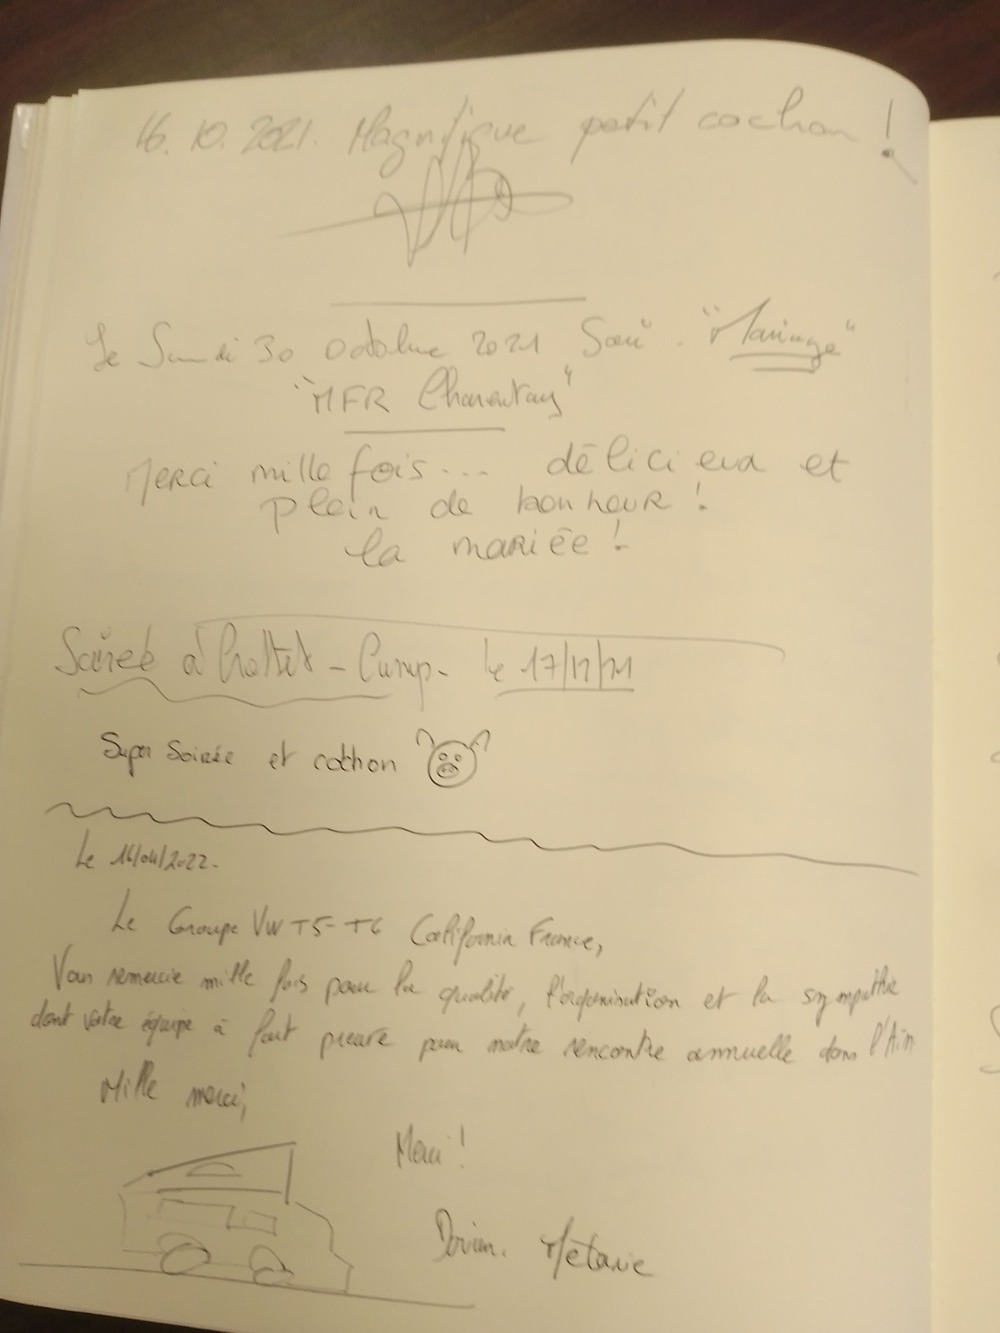 16.10.2021. Magnifique petit cochon !
Le 30 Octobre 2021 "Mariage"
"MFR Charentay"
Merci mille fois... délicieux et
plein de bonheur !
la mariée !
Soirée à - Camp - le 17/12/21
Super Soirée et cochon
Le 16/04/2022.
Le Groupe VW T5-T6 California France,
Vous remercie mille fois pour la qualité, l'organisation et la sympathie
dont votre équipe à fait preuve pour notre rencontre annuelle dans l'Ain
Mille merci,
Merci !